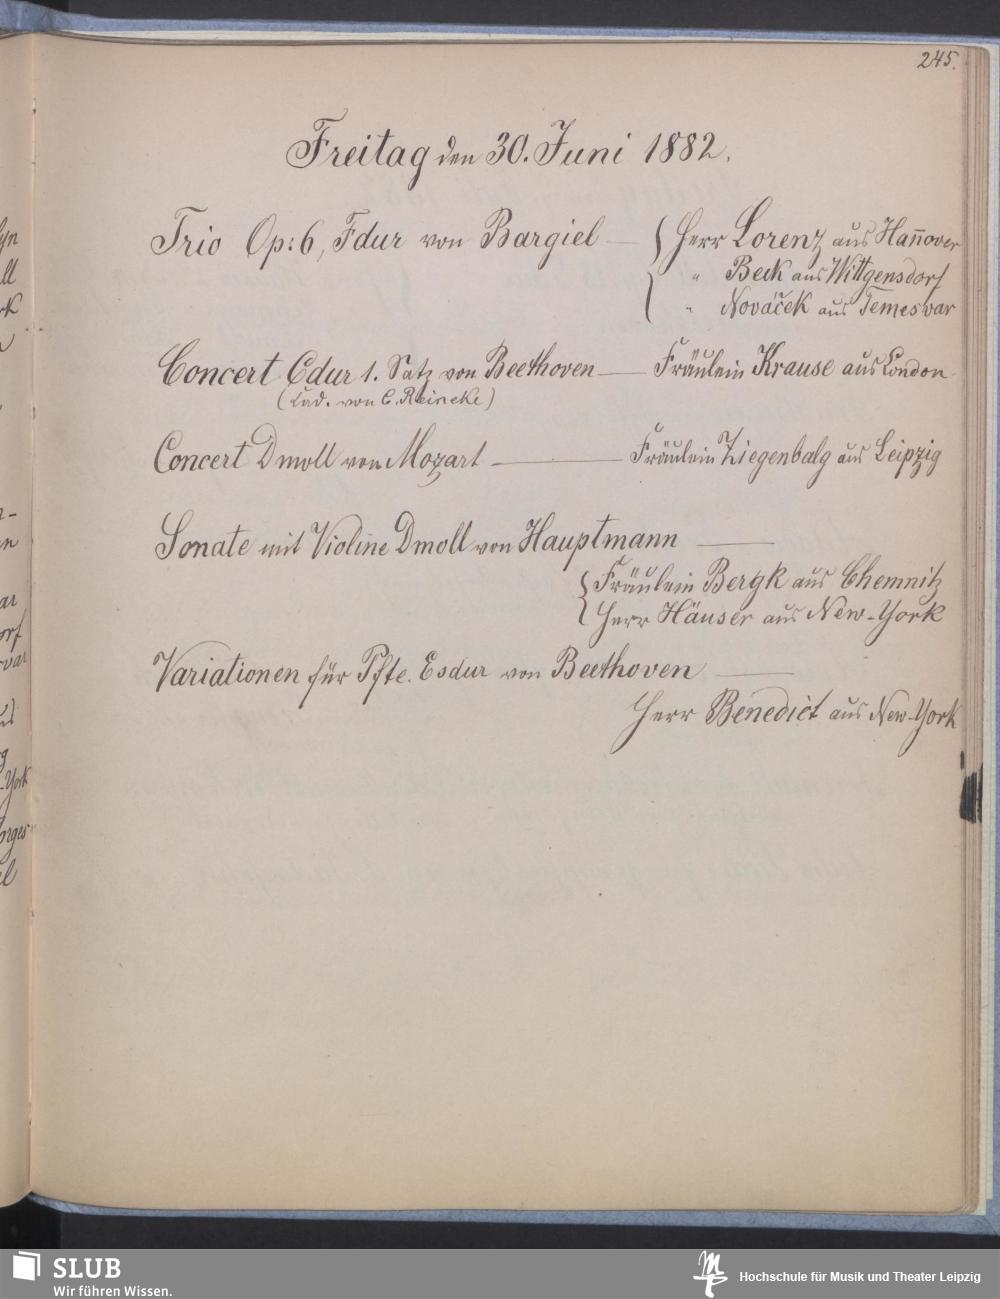 245.
Freitag den 30. Juni 1882.
Trio Op: 6, Fdur von Bargiel — Herr Lorenz aus Han̄over
" Beck aus Wittgensdorf
" Nováček aus Temesvar
Concert Cdur 1. Satz von Beethoven — Fräulein Krause aus London
(Cad. von C. Reinecke)
Concert Dmoll von Mozart — Fräulein Ziegenbalg aus Leipzig
Sonate mit Violine Dmoll von Hauptmann —
Fräulein Bergk aus Chemnitz
Herr Häuser aus New-York
Variationen für Pfte. Esdur von Beethoven —
Herr Benedict aus New-York
SLUB
Wir führen Wissen.
Hochschule für Musik und Theater Leipzig